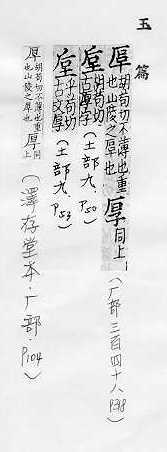 玉篇
厚胡苟切不薄也重也山陵之厚也厚同上(厂部三百四十八
垕胡苟切古文厚字(土部九.P50)
垕乎苟切古文厚(土部九.P53)
厚胡苟切不薄也重也山陵之厚也厚同上(澤存堂本.厂部.P104)